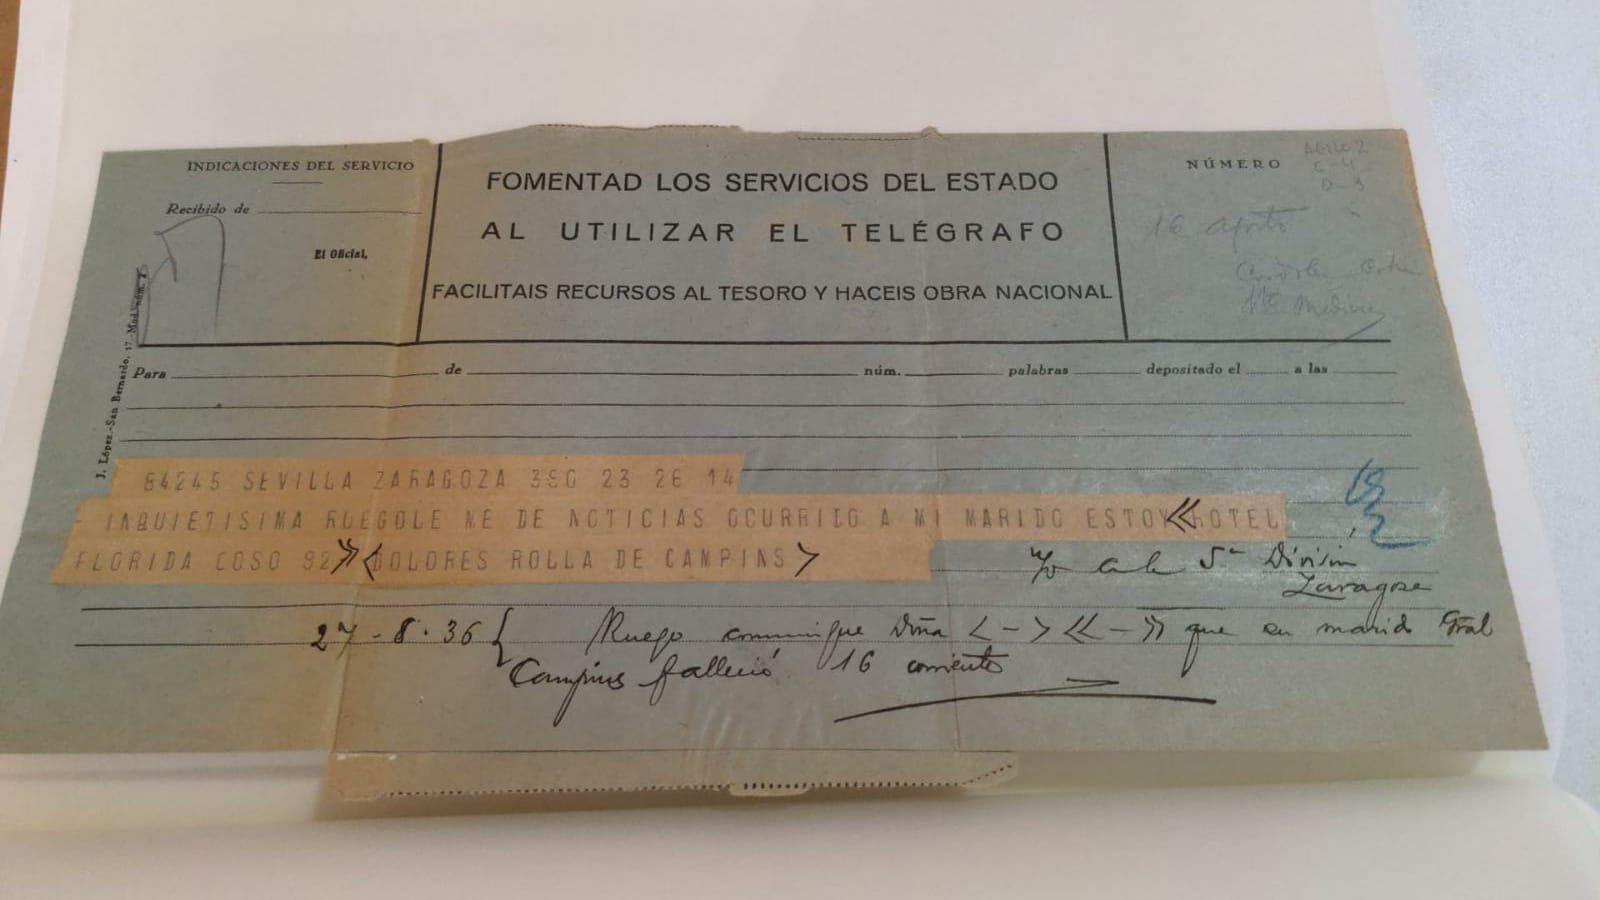 INDICACIONES DEL SERVICIO
Recibido de
El Oficial,
FOMENTAD LOS SERVICIOS DEL ESTADO
AL UTILIZAR EL TELÉGRAFO
FACILITAIS RECURSOS AL TESORO Y HACEIS OBRA NACIONAL
NÚMERO
16 agosto
J. López.-San Bernardo, 17.-Madrid
Para de núm. palabras depositado el a las
84245 SEVILLA ZARAGOZA 23 26 14
INQUIETISIMA RUEGOLE ME DE NOTICIAS OCURRIDO A MI MARIDO ESTOY << HOTEL
FLORIDA COSO 92 >> < DOLORES ROLLA DE CAMPINS >
5ª División
Zaragoza
27-8-36 { Ruego comunique Dña <-> <<->> que su marido Gral
Campins falleció 16 corriente